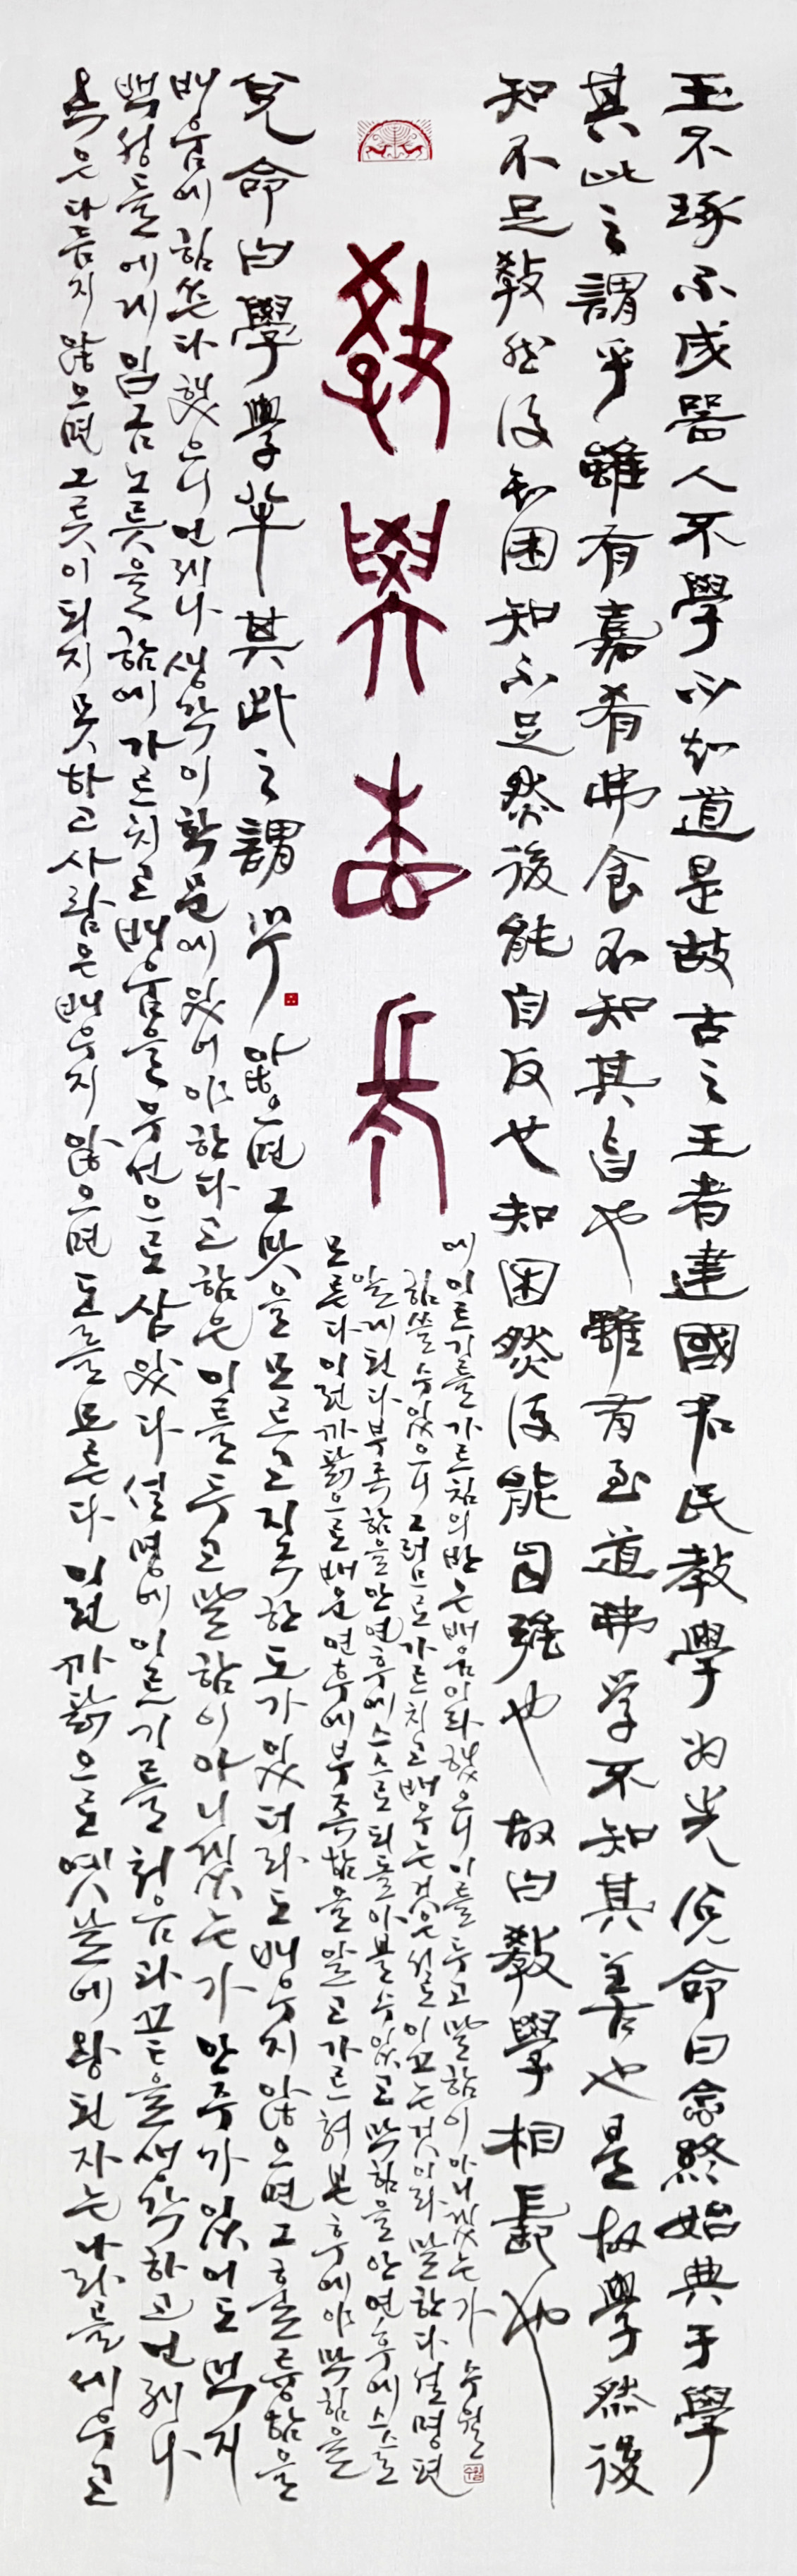 玉不琢不成器人不學不知道是故古之王者建國君民敎學爲先兌命曰念終始典于學
其此之謂乎雖有嘉肴弗食不知其旨也雖有至道弗学不知其善也是故學然後
知不足敎然後知困知不足然後能自反也知困然後能自强也 故曰敎學相長也
敎學相長
兌命曰學學半其此之謂乎
옥은다듬지않으면그릇이되지못하고사람은배우지않으면도를모른다 이런까닭으로옛날에왕된자는나라를세우고
백성들에게임금노릇을함에가르치고배움을우선으로삼았다 열명에이르기를처음과끝을생각하고언제나
배움에힘쓴다했으니언제나생각이학문에있어야한다고함은이를두고말함이아니겠는가 안주가있어도먹지
않으면그맛을모르고지극한도가있더라도배우지않으면그훌륭함을
모른다이런까닭으로배운연후에부족함을알고가르쳐본후에야막힘을
알게된다부족함을안연후에스스로되돌아볼수있고막힘을안연후에스스로
힘쓸수있으니그러므로가르치고배우는것은서로이끄는것이라말한다열명편
에이르기를가르침의반은배움이라했으니이를두고말함이아니겠는가 수월